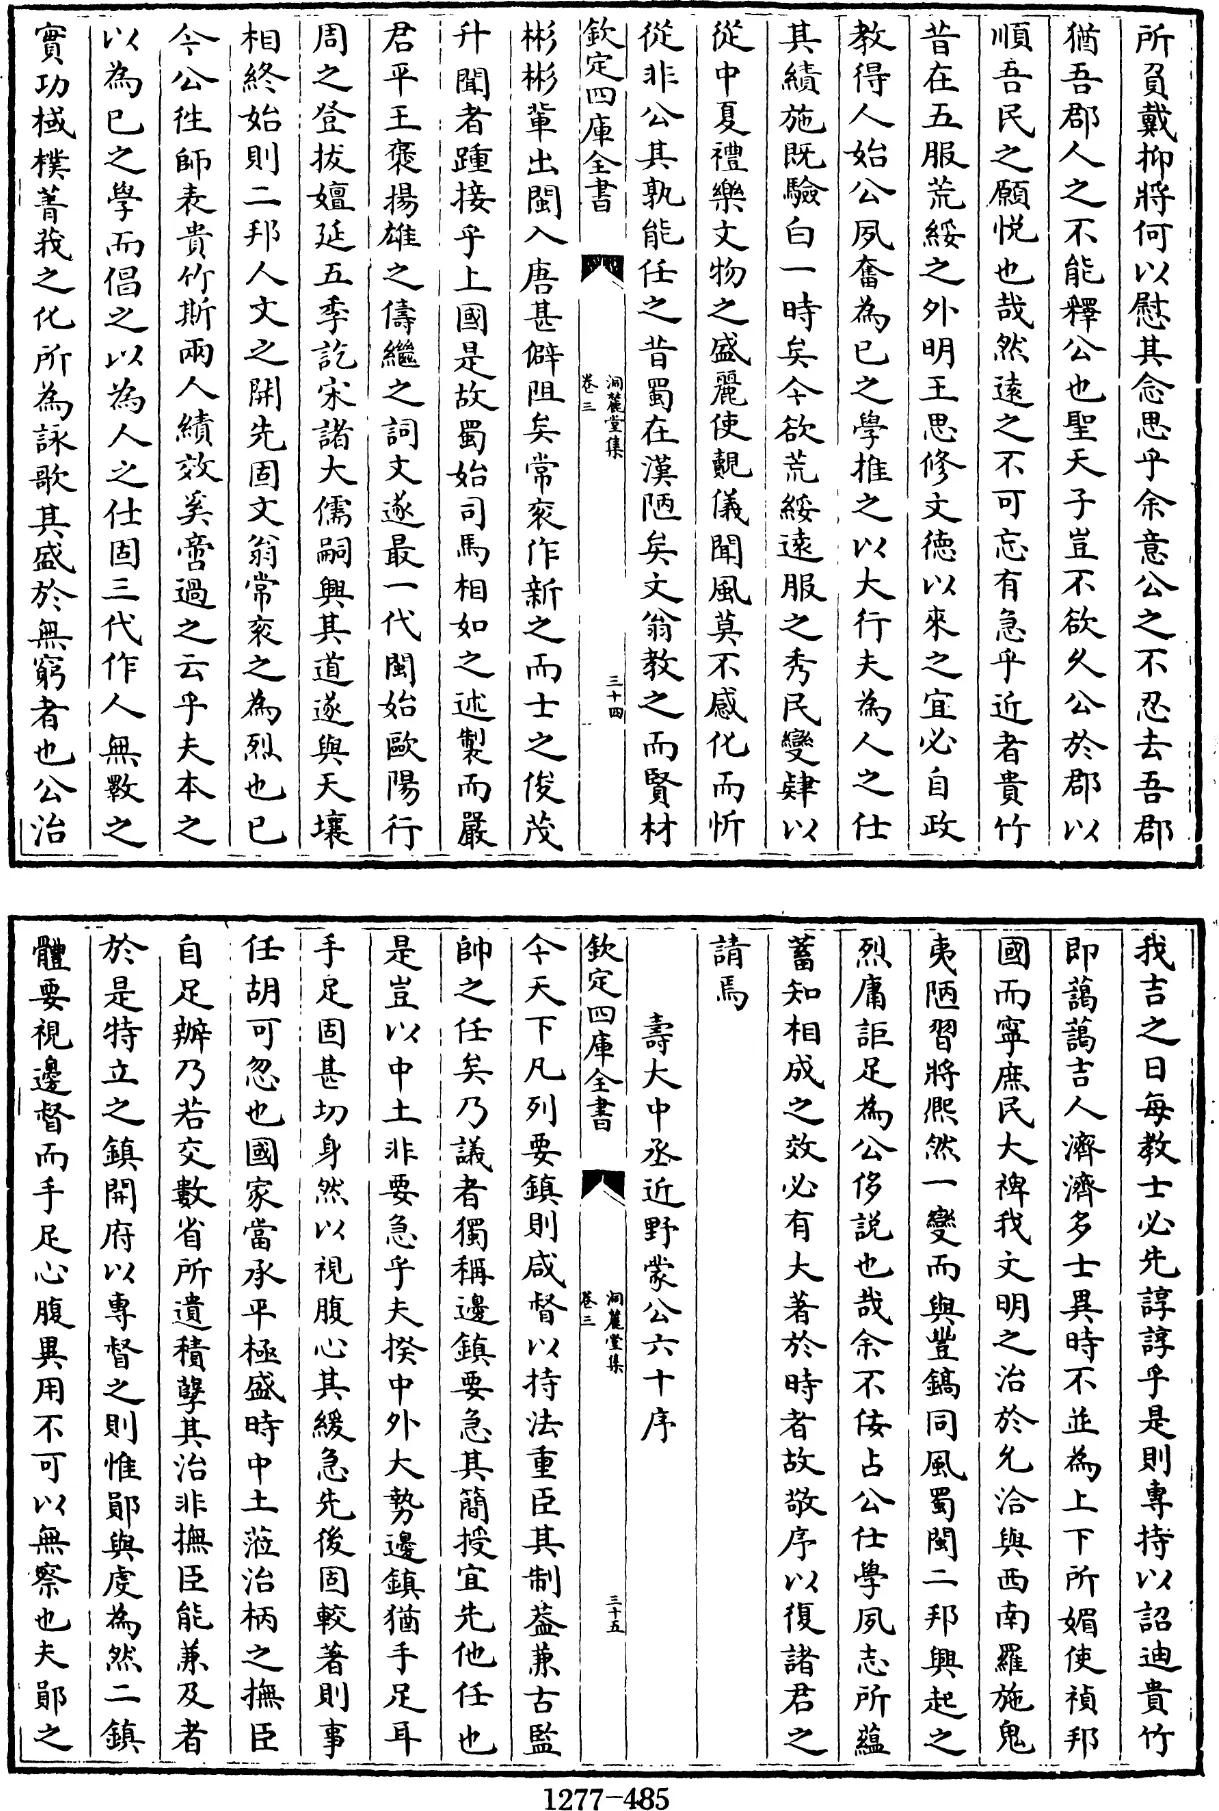 所負戴抑將何以慰其念思乎余意公之不忍去吾郡
猶吾郡人之不能釋公也聖天子豈不欲久公於郡以
順吾民之願悦也哉然逺之不可忘有急乎近者貴竹
昔在五服荒綏之外明王思修文徳以來之宜必自政
教得人始公夙奮為已之學推之以大行夫為人之仕
其績施既驗白一時矣今欲荒綏逺服之秀民變肄以
從中夏禮樂文物之盛麗使覿儀聞風莫不感化而忻
從非公其孰能任之昔蜀在漢陋矣文翁教之而賢材
欽定四庫全書
洞麓堂集
卷三
三十四
彬彬軰出閩入唐甚僻阻矣常衮作新之而士之俊茂
升聞者踵接乎上國是故蜀始司馬相如之述製而嚴
君平王褒揚雄之儔繼之詞文遂最一代閩始歐陽行
周之登拔嬗延五季訖宋諸大儒嗣興其道遂與天壤
相終始則二邦人文之開先固文翁常衮之為烈也已
今公徃師表貴竹斯兩人績效奚啻過之云乎夫本之
以為已之學而倡之以為人之仕固三代作人無斁之
實功棫樸菁莪之化所為詠歌其盛於無窮者也公治
我吉之日每教士必先諄諄乎是則專持以詔迪貴竹
即藹藹吉人濟濟多士異時不並為上下所媚使禎邦
國而寧庶民大裨我文明之治於允洽與西南羅施鬼
夷陋習將熈然一變而與豐鎬同風蜀閩二邦興起之
烈庸詎足為公侈説也哉余不佞占公仕學夙志所藴
蓄知相成之效必有大著於時者故敬序以復諸君之
請焉
壽大中丞近野蒙公六十序
欽定四庫全書
洞麓堂集
卷三
三十五
今天下凡列要鎮則咸督以持法重臣其制葢兼古監
帥之任矣乃議者獨稱邊鎮要急其簡授宜先他任也
是豈以中土非要急乎夫揆中外大勢邊鎮猶手足耳
手足固甚切身然以視腹心其緩急先後固較著則事
任胡可忽也國家當承平極盛時中土蒞治柄之撫臣
自足辦乃若交數省所遺積孽其治非撫臣能兼及者
於是特立之鎮開府以專督之則惟鄖與䖍為然二鎮
體要視邊督而手足心腹異用不可以無察也夫鄖之
1277-485